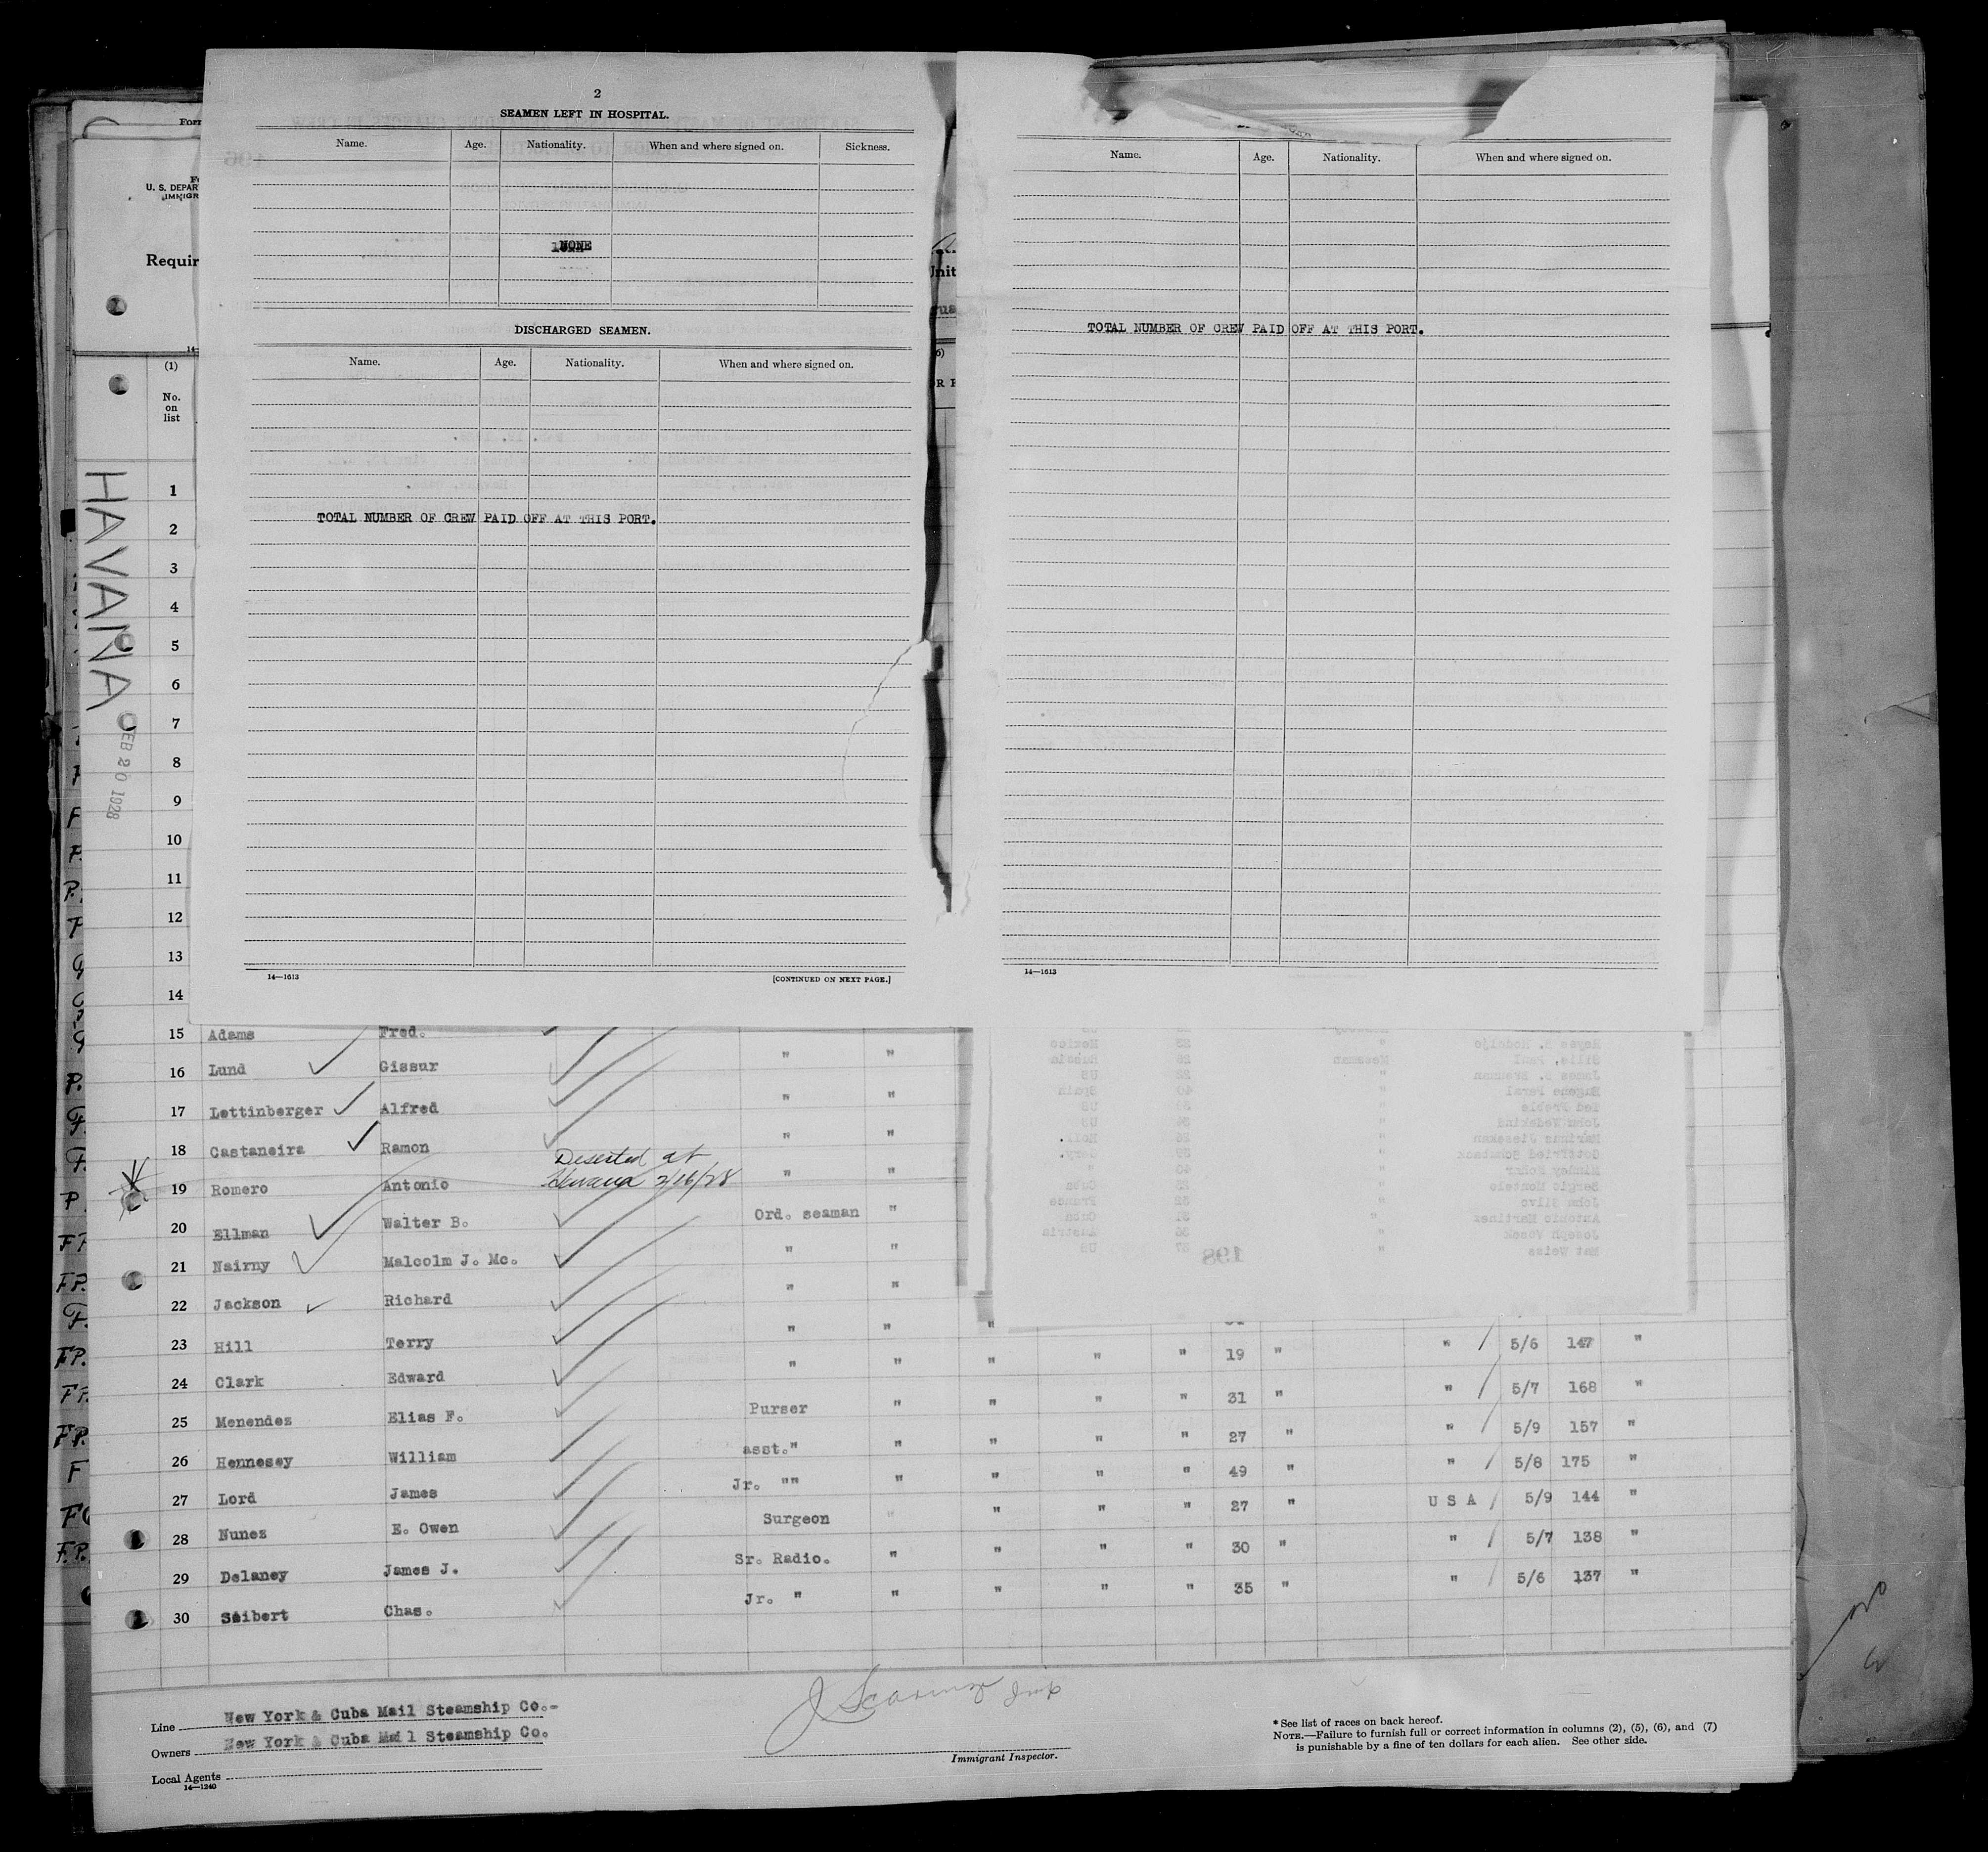 2
SEAMEN LEFT IN HOSPITAL.
Name. Age. Nationality. When and where signed on. Sickness.
NONE
DISCHARGED SEAMEN.
Name. Age. Nationality. When and where signed on.
TOTAL NUMBER OF CREW PAID OFF AT THIS PORT.
14—1613 [CONTINUED ON NEXT PAGE.]
Name. Age. Nationality. When and where signed on.
TOTAL NUMBER OF CREW PAID OFF AT THIS PORT.
14—1613
Form
U. S. DEPAR
IMMIGR
Requir
(1)
No.
on
list
HAVANA
FEB 20 1928
1
2
3
4
5
6
7
8
9
10
11
12
13
14
15 Adams Fred.
16 Lund Gissur " "
17 Lettinberger Alfred " "
18 Castaneira Ramon " "
19 Romero Antonio Deserted at Havana 2/16/28 " "
20 Ellman Walter B. Ord. seaman "
21 Nairny Malcolm J. Mc. " "
22 Jackson Richard " "
23 Hill Terry " " "
24 Clark Edward " " " " " 19 " " 5/6 147 "
25 Menendez Elias F. Purser " " " " 31 " " 5/7 168 "
26 Hennesey William asst." " " " " 27 " " 5/9 157 "
27 Lord James Jr. "" " " " " 49 " " 5/8 175 "
28 Nunez E. Owen Surgeon " " " " 27 " U S A 5/9 144 "
29 Delaney James J. Sr. Radio. " " " " 30 " " 5/7 138 "
30 Seibert Chas. Jr. " " " " " 35 " " 5/6 137 "
198
Line New York & Cuba Mail Steamship Co.-
Owners New York & Cuba Mail Steamship Co.
Local Agents
14—1240
Immigrant Inspector.
*See list of races on back hereof.
NOTE.—Failure to furnish full or correct information in columns (2), (5), (6), and (7)
is punishable by a fine of ten dollars for each alien. See other side.